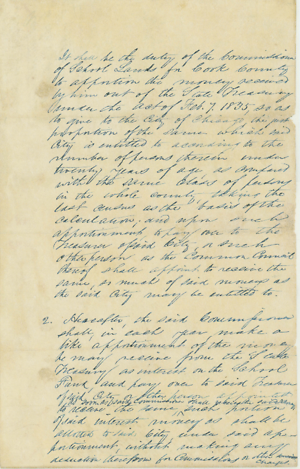 It shall be the duty of the Commissioner
of School Lands for Cook County
to apportion the money received
by him out of the State Treasury
under the act of Feb. 7. 1835, so as
to give to the City of Chicago the
proportion of the same which said
City is entitled to according to the
number of persons therein under
twenty years of age as compared
with the same class of persons
in the whole county taking the
last census as the basis of the
calculation, and upon such
apportionment to pay over to the
Treasurer of said City, or such
other person as the Common Council
thereof shall appoint to receive the
same, so much of said moneys as
the said City may be entitled to.
2. Hereafter the said Commissioner
shall, in each year make a
like apportionment of the money
he may receive from the State
Treasury as interest on the School
Fund, and pay over to said Treasurer
of said City, or other person
to receive the same, such portion
of said interest money as shall be
allotted to said City under said
apportionment, without making any
deduction therefrom for Commissions or other